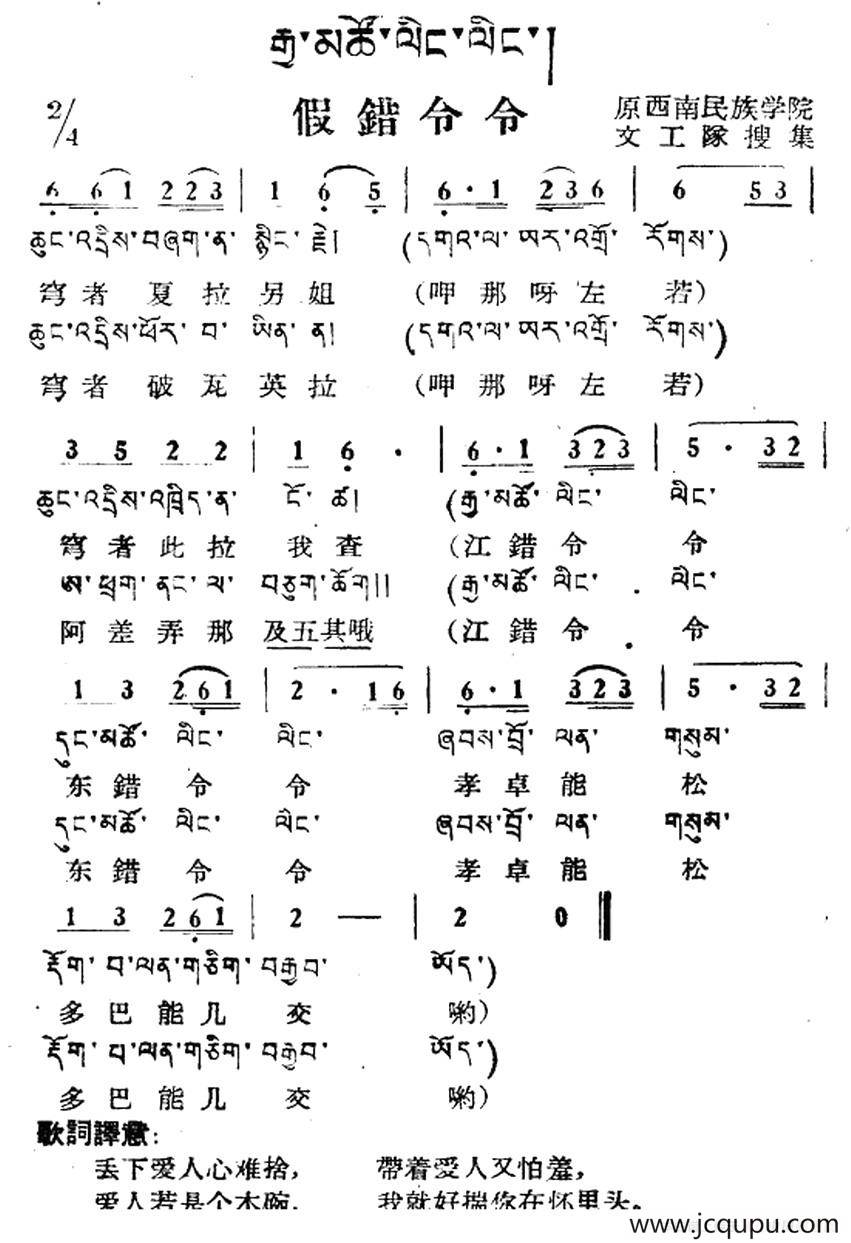 རྒྱ་མཚོ་ལིང་ལིང་།
2/4
假錯令令
原西南民族学院
文工隊搜集
6 6 1 2 2 3 | 1 6 5 | 6 · 1 2 3 6 | 6 5 3 |
ཆུང་འདྲིས་བཞག་ན་ སྙིང་རྗེ། (དགའ་ལ་ ཨར་འགྲོ་ རོགས་)
穹者 夏拉另姐 (呷那呀左 若)
ཆུང་འདྲིས་ཕོར་ བ་ ཡིན་ ན། (དགའ་ལ་ ཨར་འགྲོ་ རོགས་)
穹者 破瓦英拉 (呷那呀左 若)
3 5 2 2 | 1 6 · | 6 · 1 3 2 3 | 5 · 3 2 |
ཆུང་འདྲིས་འཁྲིད་ན་ ངོ་ ཚ། (རྒྱ་མཚོ་ ལིང་ ལིང་
穹者此拉 我査 (江錯令 令
ཨ་ཕྲག་ནང་ལ་ བཅུག་ཆོག།། (རྒྱ་མཚོ་ ལིང་ ལིང་
阿差弄那 及五其哦 (江錯令 令
1 3 2 6 1 | 2 · 1 6 | 6 · 1 3 2 3 | 5 · 3 2 |
དུང་མཚོ་ ལིང་ ལིང་ ཞབས་བྲོ་ ལན་ གསུམ་
东錯令 令 孝卓能 松
དུང་མཚོ་ ལིང་ ལིང་ ཞབས་བྲོ་ ལན་ གསུམ་
东錯令 令 孝卓能 松
1 3 2 6 1 | 2 — | 2 0 ‖
རྡོག་ པ་ལན་གཅིག་ བརྒྱབ་ ཨོད་)
多巴能几 交 喲)
རྡོག་ པ་ལན་གཅིག་ བརྒྱབ་ ཨོད་)
多巴能几 交 喲)
歌詞譯意:
丢下爱人心难捨, 帶着愛人又怕羞,
爱人若是个木碗, 我就好揣你在怀里头。
www.jcqupu.com